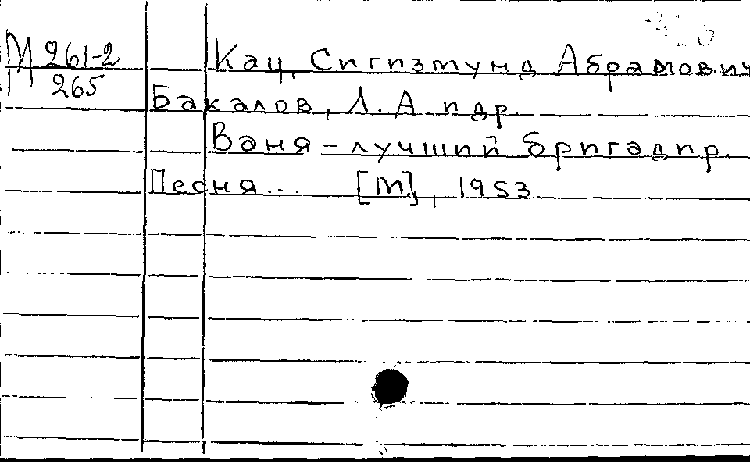 М 261-2
265
Кац, Сигизмунд Абрамович
Бакалов, Л. А. и др.
Ваня – лучший бригадир.
Песня... [М], 1953